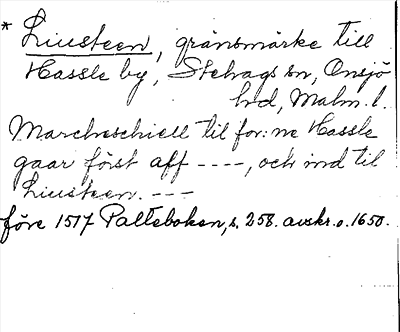 * Liusteen, gränsmärke till
Hassle by, Stehags sn, Onsjö
hd, Malm. l.
Marcheschiell til for:ne Hassle
gaar först aff ----, och ind til
Liusteen. ---
före 1517 Palteboken, s. 258. avskr. o. 1650.